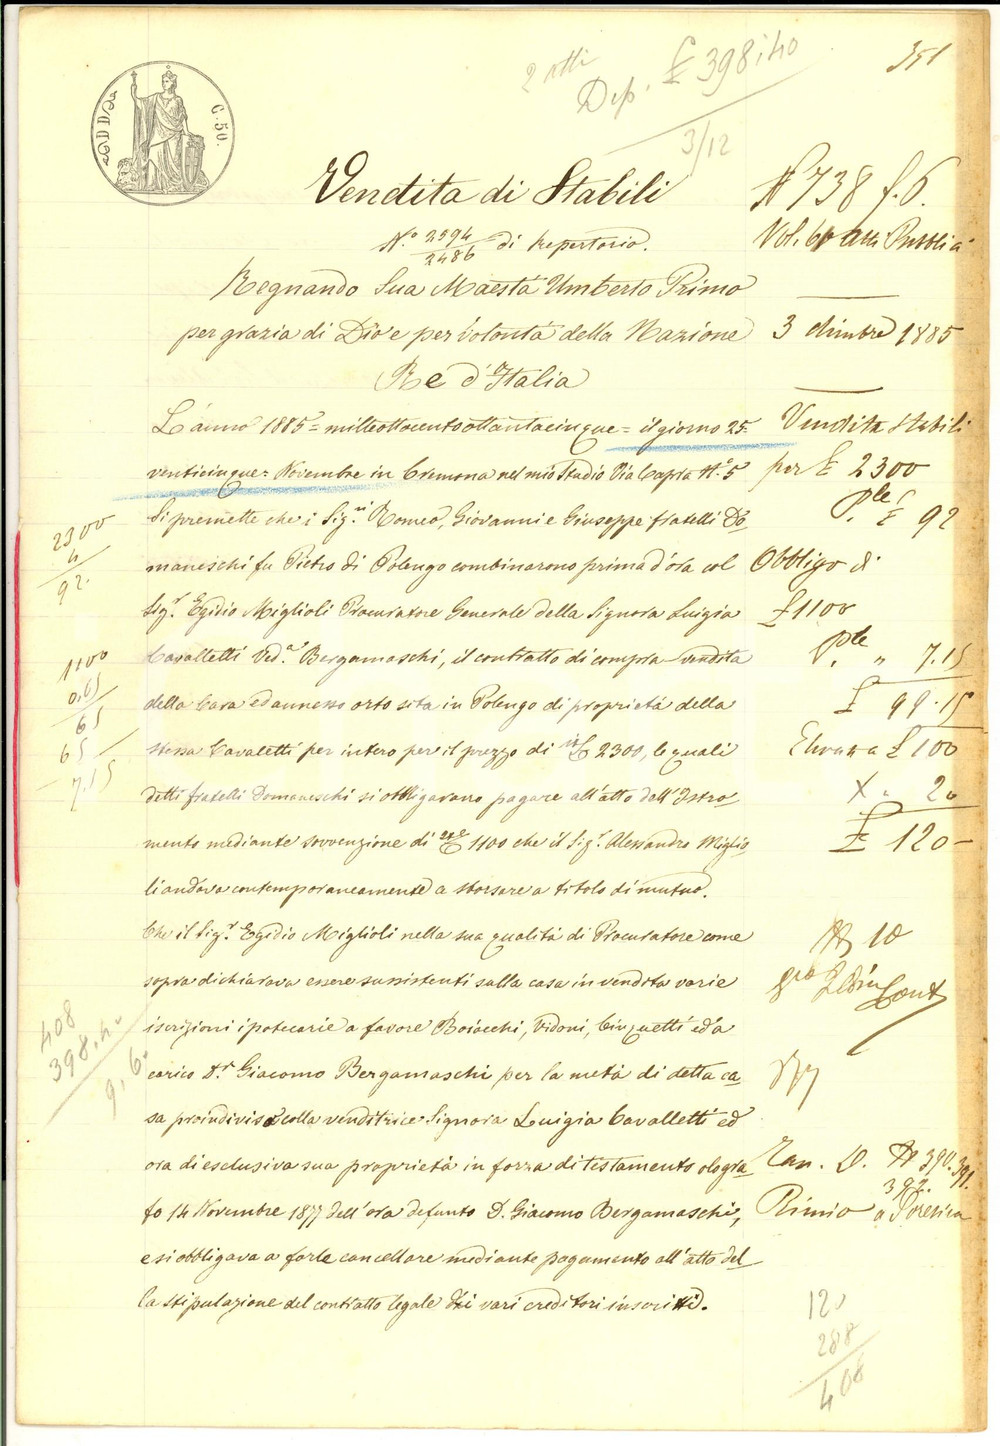 351
2 atti
Dep. £ 398,40
3/12
C. 50.
Vendita di Stabili
N.° 2594/2486 di Repertorio.
Regnando Sua Maestà Umberto Primo
per grazia di Dio e per volontà della Nazione
Re d'Italia
L'anno 1885 = milleottocentoottantacinque = il giorno 25 =
venticinque = Novembre in Cremona nel mio Studio Via Capra N.° 5
Si premette che i Sig.ri Romeo, Giovanni e Giuseppe fratelli Do
maneschi fu Pietro di Polengo combinarono prima d'ora col
Sig.r Egidio Miglioli Procuratore Generale della Signora Luigia
Cavalletti Ved.a Bergamaschi, il contratto di compra-vendita
della Casa ed annesso orto sita in Polengo di proprietà della
stessa Cavaletti per intero per il prezzo di £ 2300, le quali
detti fratelli Domaneschi si obbligavano pagare all'atto dell'Istro
mento mediante sovvenzione di £ 1100 che il Sig.r Alessandro Miglio
li andava contemporaneamente a sborsare a titolo di mutuo.
Che il Sig.r Egidio Miglioli nella sua qualità di Procuratore come
sopra dichiarava essere sussistenti sulla casa in vendita varie
iscrizioni ipotecarie a favore Boiocchi, Vidoni, Cinquetti ed a
carico D.r Giacomo Bergamaschi per la metà di detta ca
sa proindiviso colla venditrice Signora Luigia Cavalletti ed
ora di esclusiva sua proprietà in forza di testamento ologra
fo 14 Novembre 1877 dell'ora defunto D. Giacomo Bergamaschi,
e si obbligava a farle cancellare mediante pagamento all'atto del
la stipulazione del contratto legale dei vari creditori inscritti.
N° 738 f. 6.
Vol. 60 Atti Pubblici
3 dicembre 1885
Vendita Stabili
per £ 2300
P.le £ 92
Obbligo di
£ 1100
P.le " 7.15
£ 99.15
£ 100
X. 20
£ 120 -
N 10
392.
120
288
408
2300
4
92.
1100
0.65
65
65
7.15
408
398,40
9,60